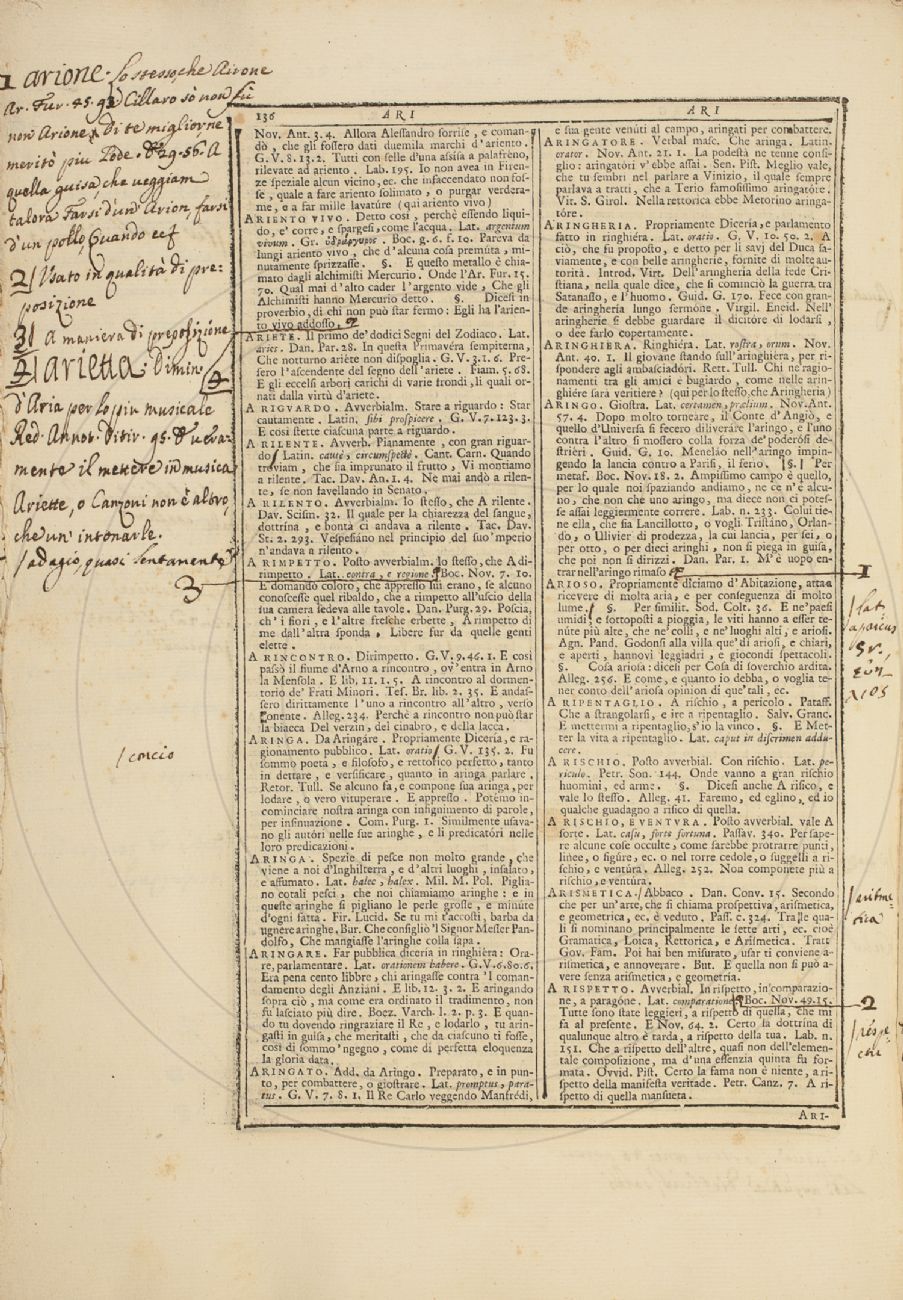 1 arione. Lo stesso, che Airone
Ar. Fur. 45. 92 Cillaro so non fu
non Arione di te miglior, ne
meritò piu lode. 29. 56. A
quella guisa, che veggiam
talora Farsi d'un Arion, farsi
d'un pollo, Quando ec
2/ Usato in qualità di pre-
posizione
3/ A maniera di preposizione
4/ arietta. Dimin.
d'Aria per lo più musicale
Red. Annot. Ditir. 95.
mente il mettere in musica
Ariette, o Canzoni non è altro,
che un' intonarle.
/ adagio, quasi lentamente
3
/ concio
136 ARI
Nov. Ant. 3. 4. Allora Alessandro sorrise, e coman-
dò, che gli fossero dati duemila marchi d'ariento.
G. V. 8. 13. 2. Tutti con selle d'una assisa a palafreno,
rilevate ad ariento. Lab. 195. Io non avea in Firen-
ze speziale alcun vicino, ec. che infaccendato non fos-
se, quale a fare ariento solimato, o purgar verdera-
me, o a far mille lavatúre (qui ariento vivo)
ARIENTO VIVO. Detto così, perchè essendo liqui-
do, e' corre, e spargesi, come l'acqua. Lat. argentum
vivum. Gr. ὑδράργυρος. Boc. g. 6. f. 10. Pareva da
lungi ariento vivo, che d'alcuna cosa premúta, mi-
nutamente sprizzasse. §. E questo metallo è chia-
mato dagli alchimisti Mercurio. Onde l'Ar. Fur. 15.
70. Qual mai d'alto cader l'argento vide, Che gli
Alchimisti hanno Mercurio detto. §. Dicesi in
proverbio, di chi non può star fermo: Egli ha l'arien-
to vivo addosso.
ARIETE. Il primo de' dodici Segni del Zodiaco. Lat.
aries. Dan. Par. 28. In questa Primavéra sempiterna,
Che notturno ariéte non dispoglia. G. V. 3. 1. 6. Pre-
sero l'ascendente del segno dell'ariete. Fiam. 5. 68.
E gli eccelsi arbori carichi di varie frondi, li quali or-
nati dalla virtù d'ariete.
A RIGUARDO. Avverbialm. Stare a riguardo: Star
cautamente. Latin. sibi prospicere. G. V. 7. 123. 3.
E così stette ciascuna parte a riguardo.
A RILENTE. Avverb. Pianamente, con gran riguar-
do/ Latin. cautè, circumspectè. Cant. Carn. Quando
troviam, che sia imprunato il frutto, Vi montiamo
a rilente. Tac. Dav. An. 1. 4. Ne mai andò a rilen-
te, se non favellando in Senato.
A RILENTO. Avverbialm. lo stesso, che A rilente.
Dav. Scism. 32. Il quale per la chiarezza del sangue,
dottrina, e bontà ci andava a rilente. Tac. Dav.
St. 2. 293. Vespesiáno nel principio del suo 'mperio
n'andava a rilento.
A RIMPETTO. Posto avverbialm. lo stesso, che A di-
rimpetto. Lat. contra, e regione. Boc. Nov. 7. 10.
E domandò coloro, che appresso lui erano, se alcuno
conoscesse quel ribaldo, che a rimpetto all'uscio della
sua camera sedeva alle tavole. Dan. Purg. 29. Poscia,
ch' i fiori, e l'altre fresche erbette, A rimpetto di
me dall'altra sponda, Libere fur da quelle genti
elette.
A RINCONTRO. Dirimpetto. G. V. 9. 46. 1. E così
passò il fiume d'Arno a rincontro, ov'entra in Arno
la Mensola. E lib. 11. 1. 5. A rincontro al dormen-
torio de' Frati Minori. Tes. Br. lib. 2. 35. E andas-
sero dirittamente l'uno a rincontro all'altro, verso
ponente. Alleg. 234. Perchè a rincontro non può star
la biacca Del verzin, del cinabro, e della lacca.
ARINGA. Da Aringáre. Propriamente Diceria, e ra-
gionamento pubblico. Lat. oratio/ G. V. 135. 2. Fu
sommo poeta, e filosofo, e rettorico perfetto, tanto
in dettare, e versificare, quanto in aringa parlare.
Retor. Tull. Se alcuno fa, e compone sua aringa, per
lodare, o vero vituperare. E appresso. Potémo in-
cominciare nostra aringa con infignimento di parole,
per infinuazione. Com. Purg. 1. Similmente usava-
no gli autóri nelle sue aringhe, e li predicatóri nelle
loro predicazioni.
ARINGA. Spezie di pesce non molto grande, che
viene a noi d'Inghilterra, e d'altri luoghi, insalato,
e affumato. Lat. halec, halex. Mil. M. Pol. Piglia-
no cotali pesci, che noi chiamiamo aringhe: e in
queste aringhe si pigliano le perle grosse, e minúte
d'ogni fatta. Fir. Lucid. Se tu mi t'accosti, barba da
ugnere aringhe, Bur. Che consiglio 'l Signor Messer Pan-
dolfo, Che mangiasse l'aringhe colla sapa.
ARINGARE. Far pubblica diceria in ringhiéra: Ora-
re, parlamentare. Lat. orationem habere. G. V. 6. 80. 6.
Era pena cento libbre, chi aringasse contra 'l coman-
damento degli Anziani. E lib. 12. 3. 2. E aringando
sopra ciò, ma come era ordinato il tradimento, non
fu lasciato più dire. Boez. Varch. l. 2. p. 3. E quan-
do tu dovendo ringraziare il Re, e lodarlo, tu arin-
gasti in guisa, che meritasti, che da ciascuno ti fosse,
così di sommo 'ngegno, come di perfetta eloquenza
la gloria data.
ARINGATO. Add. da Aringo. Preparato, e in pun-
to, per combattere, o giostrare. Lat. promptus, para-
tus. G. V. 7. 8. 1. Il Re Carlo veggendo Manfrédi,
ARI
e sua gente venúti al campo, aringati per combattere.
ARINGATORE. Verbal masc. Che aringa. Latin.
orator. Nov. Ant. 21. 1. La podestà ne tenne consi-
glio: aringatóri v'ebbe assai. Sen. Pist. Meglio vale,
che tu sembri nel parlare a Vinizio, il quale sempre
parlava a tratti, che a Terio famosissimo aringatóre.
Vit. S. Girol. Nella rettorica ebbe Metorino aringa-
tóre.
ARINGHERIA. Propriamente Diceria, e parlamento
fatto in ringhiéra. Lat. oratio. G. V. 10. 50. 2. A
ciò, che fu proposto, e detto per li savj del Duca sa-
viamente, e con belle aringherie, fornite di molte au-
torità. Introd. Virt. Dell'aringheria della fede Cri-
stiana, nella quale dice, che si cominciò la guerra tra
Satanasso, e l'huomo. Guid. G. 170. Fece con gran-
de aringheria lungo sermóne. Virgil. Eneid. Nell'
aringherie si debbe guardare il dicitóre di lodarsi,
o dee farlo copertamente.
ARINGHIERA. Ringhiéra. Lat. rostra, orum. Nov.
Ant. 40. 1. Il giovane stando sull'aringhiéra, per ri-
spondere agli ambasciadóri. Rett. Tull. Chi ne'ragio-
namenti tra gli amici è bugiardo, come nelle arin-
ghiére sarà veritiere? (qui per lo stesso, che Aringheria)
ARINGO. Giostra. Lat. certamen, prælium. Nov. Ant.
57. 4. Dopo molto torneare, il Conte d'Angiò, e
quello d'Universa si fecero diliveráre l'aringo, e l'uno
contra l'altro si mossero colla forza de' poderósi de-
striéri. Guid. G. 10. Menelao nell'aringo impin-
gendo la lancia contro a Parisi, il ferío. §. Per
metaf. Boc. Nov. 18. 2. Ampissimo campo è quello,
per lo quale noi spaziando andiamo, ne ce n'è alcu-
no, che non che uno aringo, ma diece non ci potes-
se assai leggiermente correre. Lab. n. 233. Colui tie-
ne ella, che sia Lancillotto, o vogli Tristáno, Orlan-
do, o Ulivier di prodezza, la cui lancia, per sei, o
per otto, o per dieci aringhi, non si piega in guisa,
che poi non si dirizzi. Dan. Par. 1. M'è uopo en-
trar nell'aringo rimaso
ARIOSO. Propriamente diciamo d'Abitazione, atta a
ricevere di molta aria, e per conseguenza di molto
lume./ §. Per similit. Sod. Colt. 36. E ne'paesi
umidi, e sottoposti a pioggia, le viti hanno a esser te-
núte più alte, che ne'colli, e ne'luoghi alti, e ariosi.
Agn. Pand. Godonsi alla villa que'dì ariosi, e chiari,
e aperti, hannovi leggiadri, e giocondi spettacoli.
§. Cosa ariosa: dicesi per Cosa di soverchio ardita.
Alleg. 256. E come, e quanto io debba, o voglia te-
ner conto dell'ariosa opinion di que'tali, ec.
A RIPENTAGLIO. A rischio, a pericolo. Pataff.
Che a strangolarsi, e ire a ripentaglio. Salv. Granc.
E mettermi a ripentaglio, s'io la vinco. §. E Met-
ter la vita a ripentaglio. Lat. caput in discrimen addu-
cere.
A RISCHIO. Posto avverbial. Con rischio. Lat. pe-
riculo. Petr. Son. 144. Onde vanno a gran rischio
huomini, ed arme. §. Dicesi anche A risico, e
vale lo stesso. Alleg. 41. Faremo, ed eglino, ed io
qualche guadagno a risico di quella.
A RISCHIO, E VENTVRA. Posto avverbial. vale A
sorte. Lat. casu, forte fortuna. Passav. 340. Per sape-
re alcune cose occulte, come sarebbe protrarre punti,
linee, o figúre, ec. o nel torre cedole, o suggelli a ri-
schio, e ventúra. Alleg. 252. Non componete più a
rischio, e ventura.
ARISMETICA./ Abbaco. Dan. Conv. 15. Secondo
che per un'arte, che si chiama prospettiva, arismetica,
e geometrica, ec. è veduto. Pass. c. 324. Tra le qua-
li si nominano principalmente le sette arti, ec. cioè
Gramatica, Loica, Rettorica, e Arismetica. Tratt.
Gov. Fam. Poi hai ben misurato, usar ti conviene a-
rismetica, e annoverare. But. E quella non si può a-
vere senza arismetica, e geometria.
A RISPETTO. Avverbial. In rispetto, in comparazio-
ne, a paragóne. Lat. comparatione Boc. Nov. 49. 15.
Tutte sono state leggieri, a rispetto di quella, che mi
fa al presente. E Nov. 64. 2. Certo la dottrina di
qualunque altro è tarda, a rispetto della tua. Lab. n.
151. Che a rispetto dell'altre, quasi non dell'elemen-
tale composizione, ma d'una essenzia quinta fu for-
mata. Ovvid. Pist. Certo la fama non è niente, a ri-
spetto della manifesta veritade. Petr. Canz. 7. A ri-
spetto di quella mansueta.
ARI-
1
/ lat.
apricus
Gr.
/ aritme-
tica
2